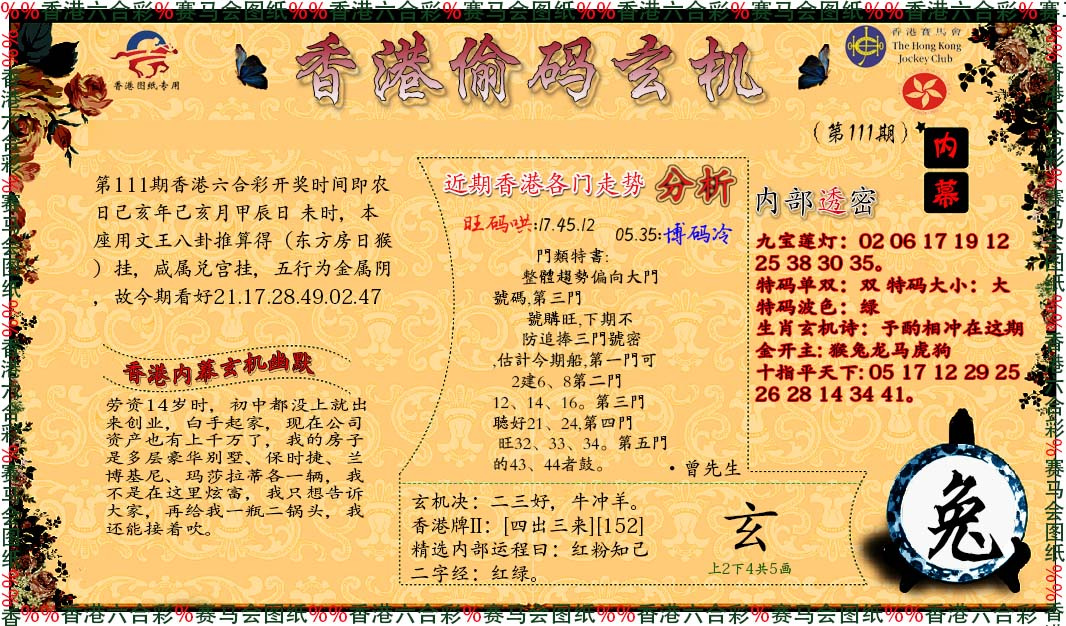 %%香港六合彩%赛马会图纸%%香港六合彩%赛马会图纸%%香港六合彩%赛马会图纸%%香港六合彩%赛马
香港图纸专用
香港偷码玄机
香港賽馬會
The Hong Kong
Jockey Club
（第111期）
内幕
第111期香港六合彩开奖时间即农
日己亥年己亥月甲辰日 未时，本
座用文王八卦推算得（东方房日猴
）挂，咸属兑宫挂，五行为金属阴
，故今期看好21.17.28.49.02.47
香港内幕玄机幽默
劳资14岁时，初中都没上就出
来创业，白手起家，现在公司
资产也有上千万了，我的房子
是多层豪华别墅、保时捷、兰
博基尼、玛莎拉蒂各一辆，我
不是在这里炫富，我只想告诉
大家，再给我一瓶二锅头，我
还能接着吹。
近期香港各门走势 分析
旺码哄:17.45.12
05.35:博码冷
門類特書:
整體趨勢偏向大門
號碼,第三門
號購旺,下期不
防追捧三門號密
,估計今期船,第一門可
2建6、8第二門
12、14、16。第三門
聽好21、24,第四門
旺32、33、34。第五門
的43、44者鼓。
·曾先生
玄机决：二三好，牛冲羊。
香港牌II：[四出三来][152]
精选内部运程曰：红粉知己
二字经：红绿。
玄
上2下4共5画
内部透密
九宝莲灯：02 06 17 19 12
25 38 30 35。
特码单双：双 特码大小：大
特码波色：绿
生肖玄机诗：予酌相冲在这期
金开主: 猴兔龙马虎狗
十指平天下: 05 17 12 29 25
26 28 14 34 41。
兔
香%%香港六合彩%赛马会图纸%%香港六合彩%赛马会图纸%%香港六合彩%赛马会图纸%%香港六合彩